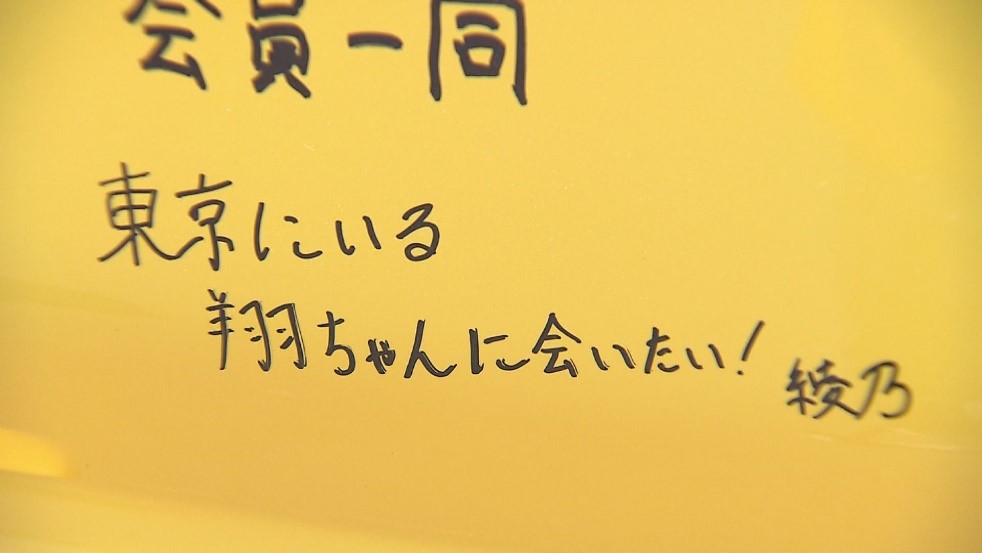 会員一同
東京にいる
翔ちゃんに会いたい!
綾乃